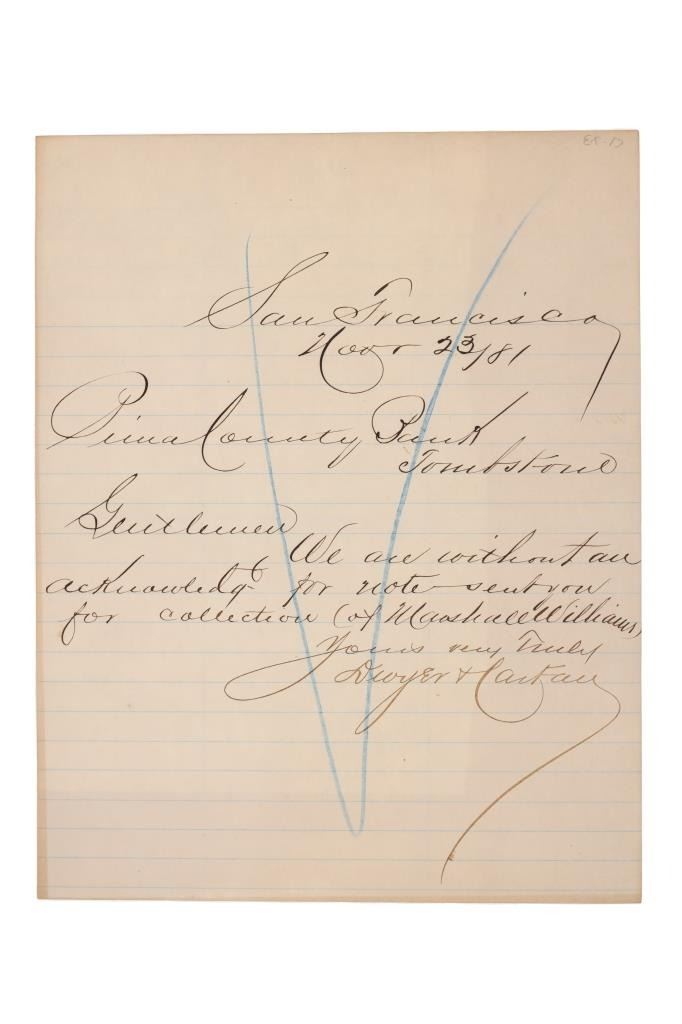 San Francisco
Novr 23/81
Pima County Bank
Tombstone
Gentlemen
We are without an
acknowledgt for note sent you
for collection (of Marshall Williams)
Yours very Truly
Dwyer &